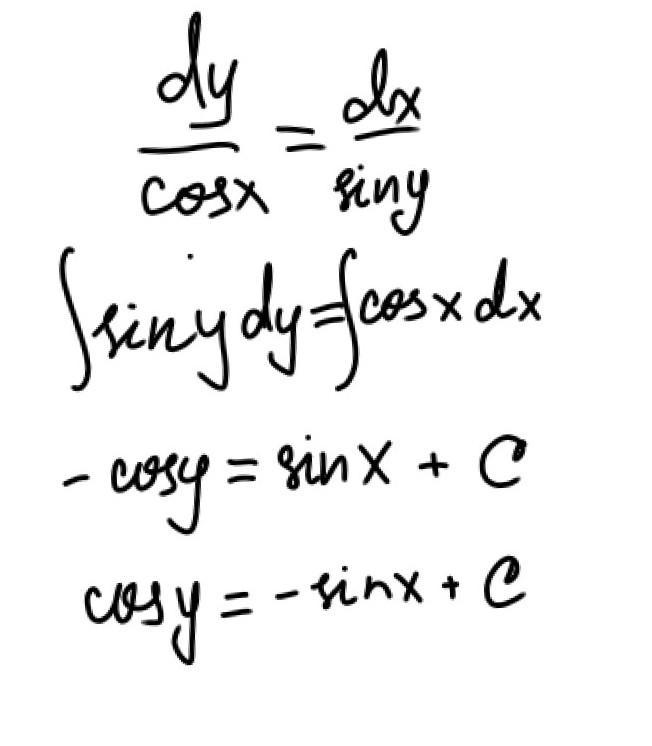 dy/cosx = dx/siny
∫siny dy = ∫cosx dx
- cosy = sinx + C
cosy = - sinx + C